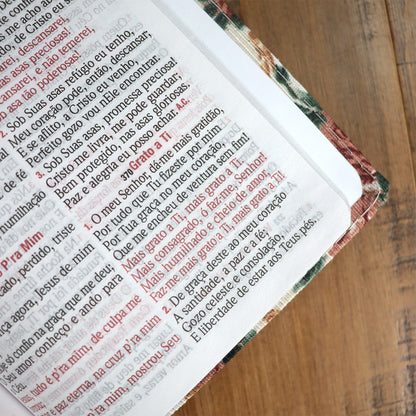 descansarei,
asas preciosas!
descansarei, e não temerei,
asas tão poderosas!
2. Sob Suas asas refúgio eu tenho,
Meu coração pode então, descansar,
Se aflito, a Cristo eu venho,
Perfeito gozo vou nEle encontrar.
3. Sob Suas asas, promessa preciosa!
Cristo me livra, me pode guardar,
Bem protegido, nas asas gloriosas.
Paz e alegria eu posso gozar. A.C.
370 Grato a Ti
1. O meu Senhor, tenho mais gratidão,
Por tudo que Tu fizeste por mim.
Por Tua graça no meu coração,
Que me encheu de ventura sem fim!
Mais grato a Ti, mais grato a Ti,
Mais consagrado, ó faz-me, Senhor!
Mais humilhado e cheio de amor,
Faz-me mais grato a Ti, mais grato a Ti.
2. De graça deste ao meu coração
A santidade, a paz e a fé;
Gozo celeste e consolação,
E liberdade de estar aos Teus pés.
de fé
humilhação
P'ra Mim
perdido, triste
Jesus de mim
confio na graça que me deu;
Seu amor conheço e ando para
tudo é p'ra mim, de culpa me
paz eterna, na cruz p'ra mim
mim, mostrou Seu